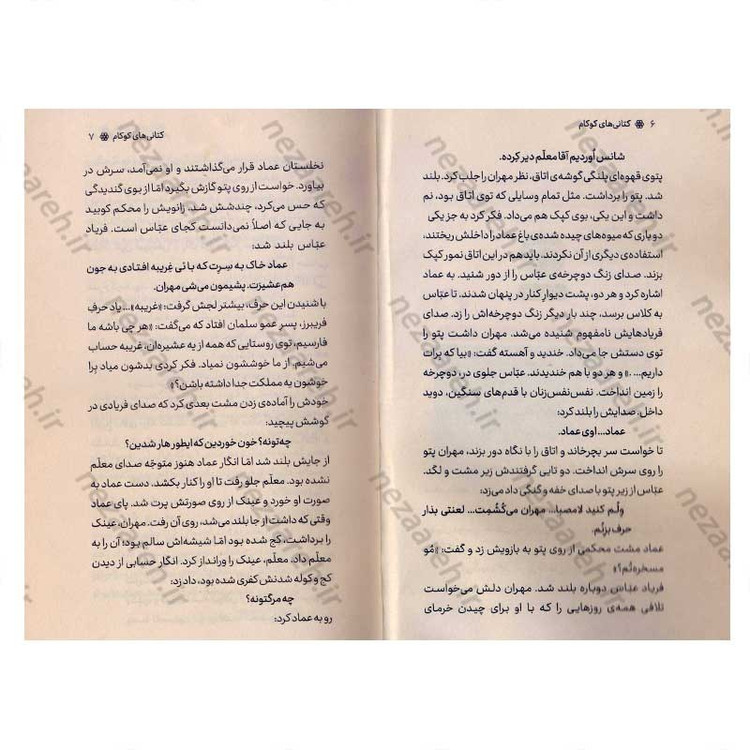 ۶ کتانی‌های کوکام
شانس اُوردیم آقا معلّم دیر کِرده.
پتوی قهوه‌ای پلنگی گوشه‌ی اتاق، نظر مهران را جلب کرد. بلند
شد. پتو را برداشت. مثل تمام وسایلی که توی اتاق بود، نم
داشت و این یکی، بوی کپک هم می‌داد. فکر کرد به جز یکی
دو باری که میوه‌های چیده شده‌ی باغ عماد را داخلش ریختند،
استفاده‌ی دیگری از آن نکردند. باید هم در این اتاق نمور کپک
بزند. صدای زنگ دوچرخه‌ی عبّاس را از دور شنید. به عماد
اشاره کرد و هر دو، پشت دیوارِ کنار در پنهان شدند، تا عبّاس
به کلاس برسد، چند بار دیگر زنگ دوچرخه‌اش را زد. صدای
فریادهایش نامفهوم شنیده می‌شد. مهران داشت پتو را
توی دستش جا می‌داد. خندید و آهسته گفت: «بیا که برات
داریم... .» و هر دو با هم خندیدند. عبّاس جلوی در، دوچرخه
را زمین انداخت. نفس‌نفس‌زنان با قدم‌های سنگین، دوید
داخل. صدایش را بلند کرد:
عماد...اوی عماد.
تا خواست سر بچرخاند و اتاق را با نگاه دور بزند، مهران پتو
را روی سرش انداخت. دو تایی گرفتندش زیر مشت و لگد.
عبّاس از زیر پتو با صدای خفه و گنگی داد می‌زد:
ولُم کنید لامصبا... مهران می‌کُشُمِت... لعنتی بذار
حرف بِزنُم.
عماد مشت محکمی از روی پتو به بازویش زد و گفت: «مُو
مسخره‌تُم؟»
فریاد عبّاس دوباره بلند شد. مهران دلش می‌خواست
تلافی همه‌ی روزهایی را که با او برای چیدن خرمای
کتانی‌های کوکام ۷
نخلستان عماد قرار می‌گذاشتند و او نمی‌آمد، سرش در
بیاورد. خواست از روی پتو گازش بگیرد امّا از بوی گندیدگی
که حس می‌کرد، چندشش شد. زانویش را محکم کوبید
به جایی که اصلاً نمی‌دانست کجای عبّاس است. فریاد
عبّاس بلند شد:
عماد خاک به سِرِت که با ئی غریبه افتادی به جون
هم‌عشیرَت. پشیمون می‌شی مهران.
با شنیدن این حرف، بیشتر لجش گرفت: «غریبه»... یاد حرفِ
فریبرز، پسرِ عمو سلمان افتاد که می‌گفت: «هر چی باشه ما
فارسیم، توی روستایی که همه از یه عشیره‌ان، غریبه حساب
می‌شیم. از ما خوششون نمیاد. فکر کردی بدشون میاد پرا
خودشون یه مملکت جدا داشته باشن؟»
خودش را آماده‌ی زدن مشت بعدی کرد که صدای فریادی در
گوشش پیچید:
چه‌تونه؟ خون خوردین که ایطور هار شدین؟
از جایش بلند شد امّا انگار عماد هنوز متوجّه صدای معلّم
نشده بود. معلّم جلو رفت تا او را کنار بکشد، دست عماد به
صورت او خورد و عینک از روی صورتش پرت شد. پای عماد
وقتی که داشت از جا بلند می‌شد، روی آن رفت. مهران، عینک
را برداشت، کج شده بود امّا شیشه‌اش سالم بود؛ آن را به
معلّم داد. معلّم، عینک را ورانداز کرد. انگار حسابی از دیدن
کج و کوله شدنش کفری شده بود، داد زد:
چه مرگتونه؟
رو به عماد کرد:
nezaareh.ir